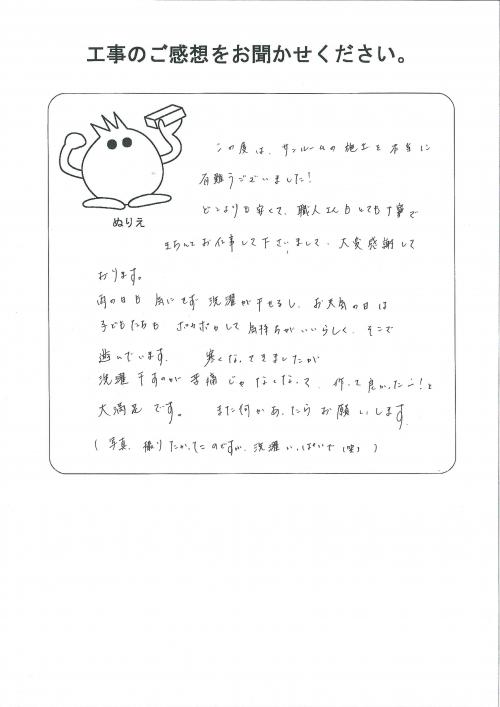 工事のご感想をお聞かせください。
ぬりえ
この度は、サンルームの施工を本当に
有難うございました！
どこよりも安くて、職人さんもとても丁寧で
きちんとお仕事して下さいまして、大変感謝して
おります。
雨の日も気にせず洗濯が干せるし、お天気の日は
子どもたちも ポカポカして気持ちがいいらしく、そこで
遊んでいます。 寒くなってきましたが
洗濯干すのが苦痛じゃなくなって、作って良かったー！と
大満足です。 また何かあったらお願いします。
（写真、撮りたかったのですが、洗濯いっぱいで（笑））